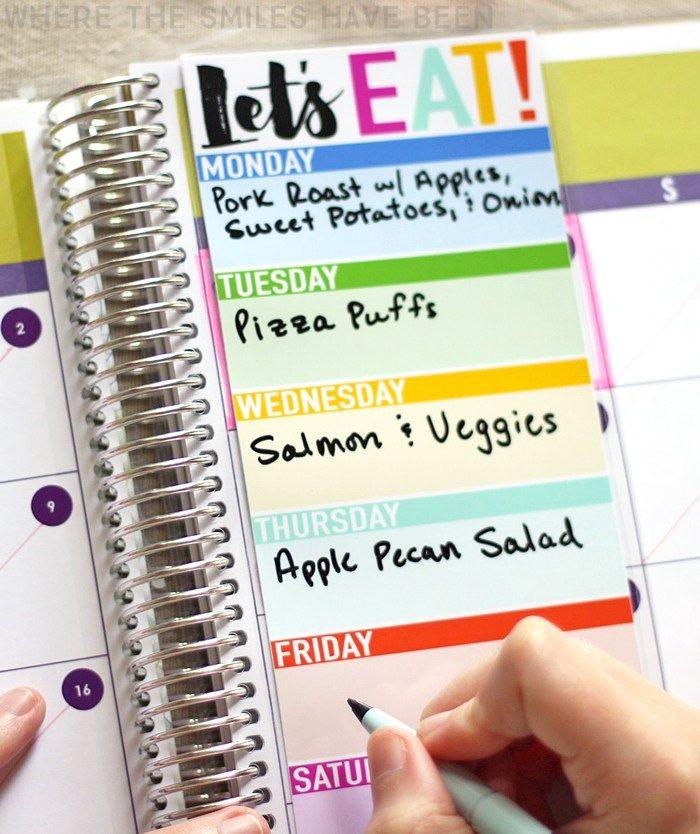 WHERE THE SMILES HAVE BEEN
Let's EAT!
MONDAY
Pork Roast w/ Apples,
Sweet Potatoes, & Onion
TUESDAY
Pizza Puffs
WEDNESDAY
Salmon & Veggies
THURSDAY
Apple Pecan Salad
FRIDAY
2
9
16
S